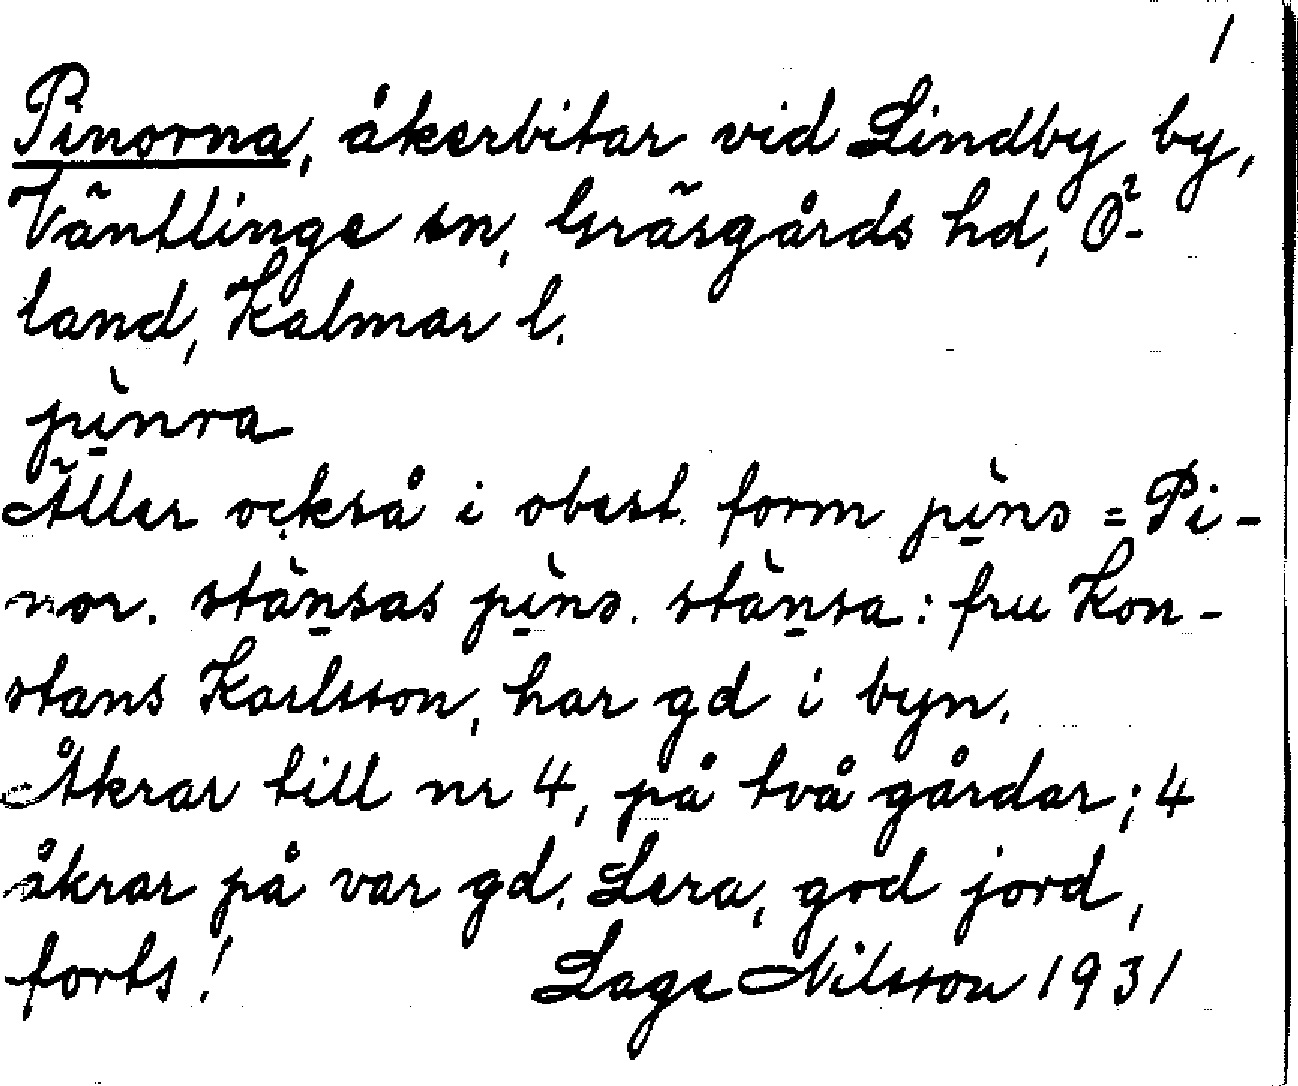 1
Pinorna, åkerbitar vid Lindby by,
Väntlinge sn, Gräsgårds hd, Ö-
land, Kalmar l.
pì̱nra
Äller också i obest. form pì̱nɔ = Pi-
nor. stàn̠sas pì̱nɔ. stàn̠sa: fru Kon-
stans Karlsson, har gd i byn.
Åkrar till nr 4, på två gårdar; 4
åkrar på var gd. Lera, god jord,
forts! Lage Nilsson 1931